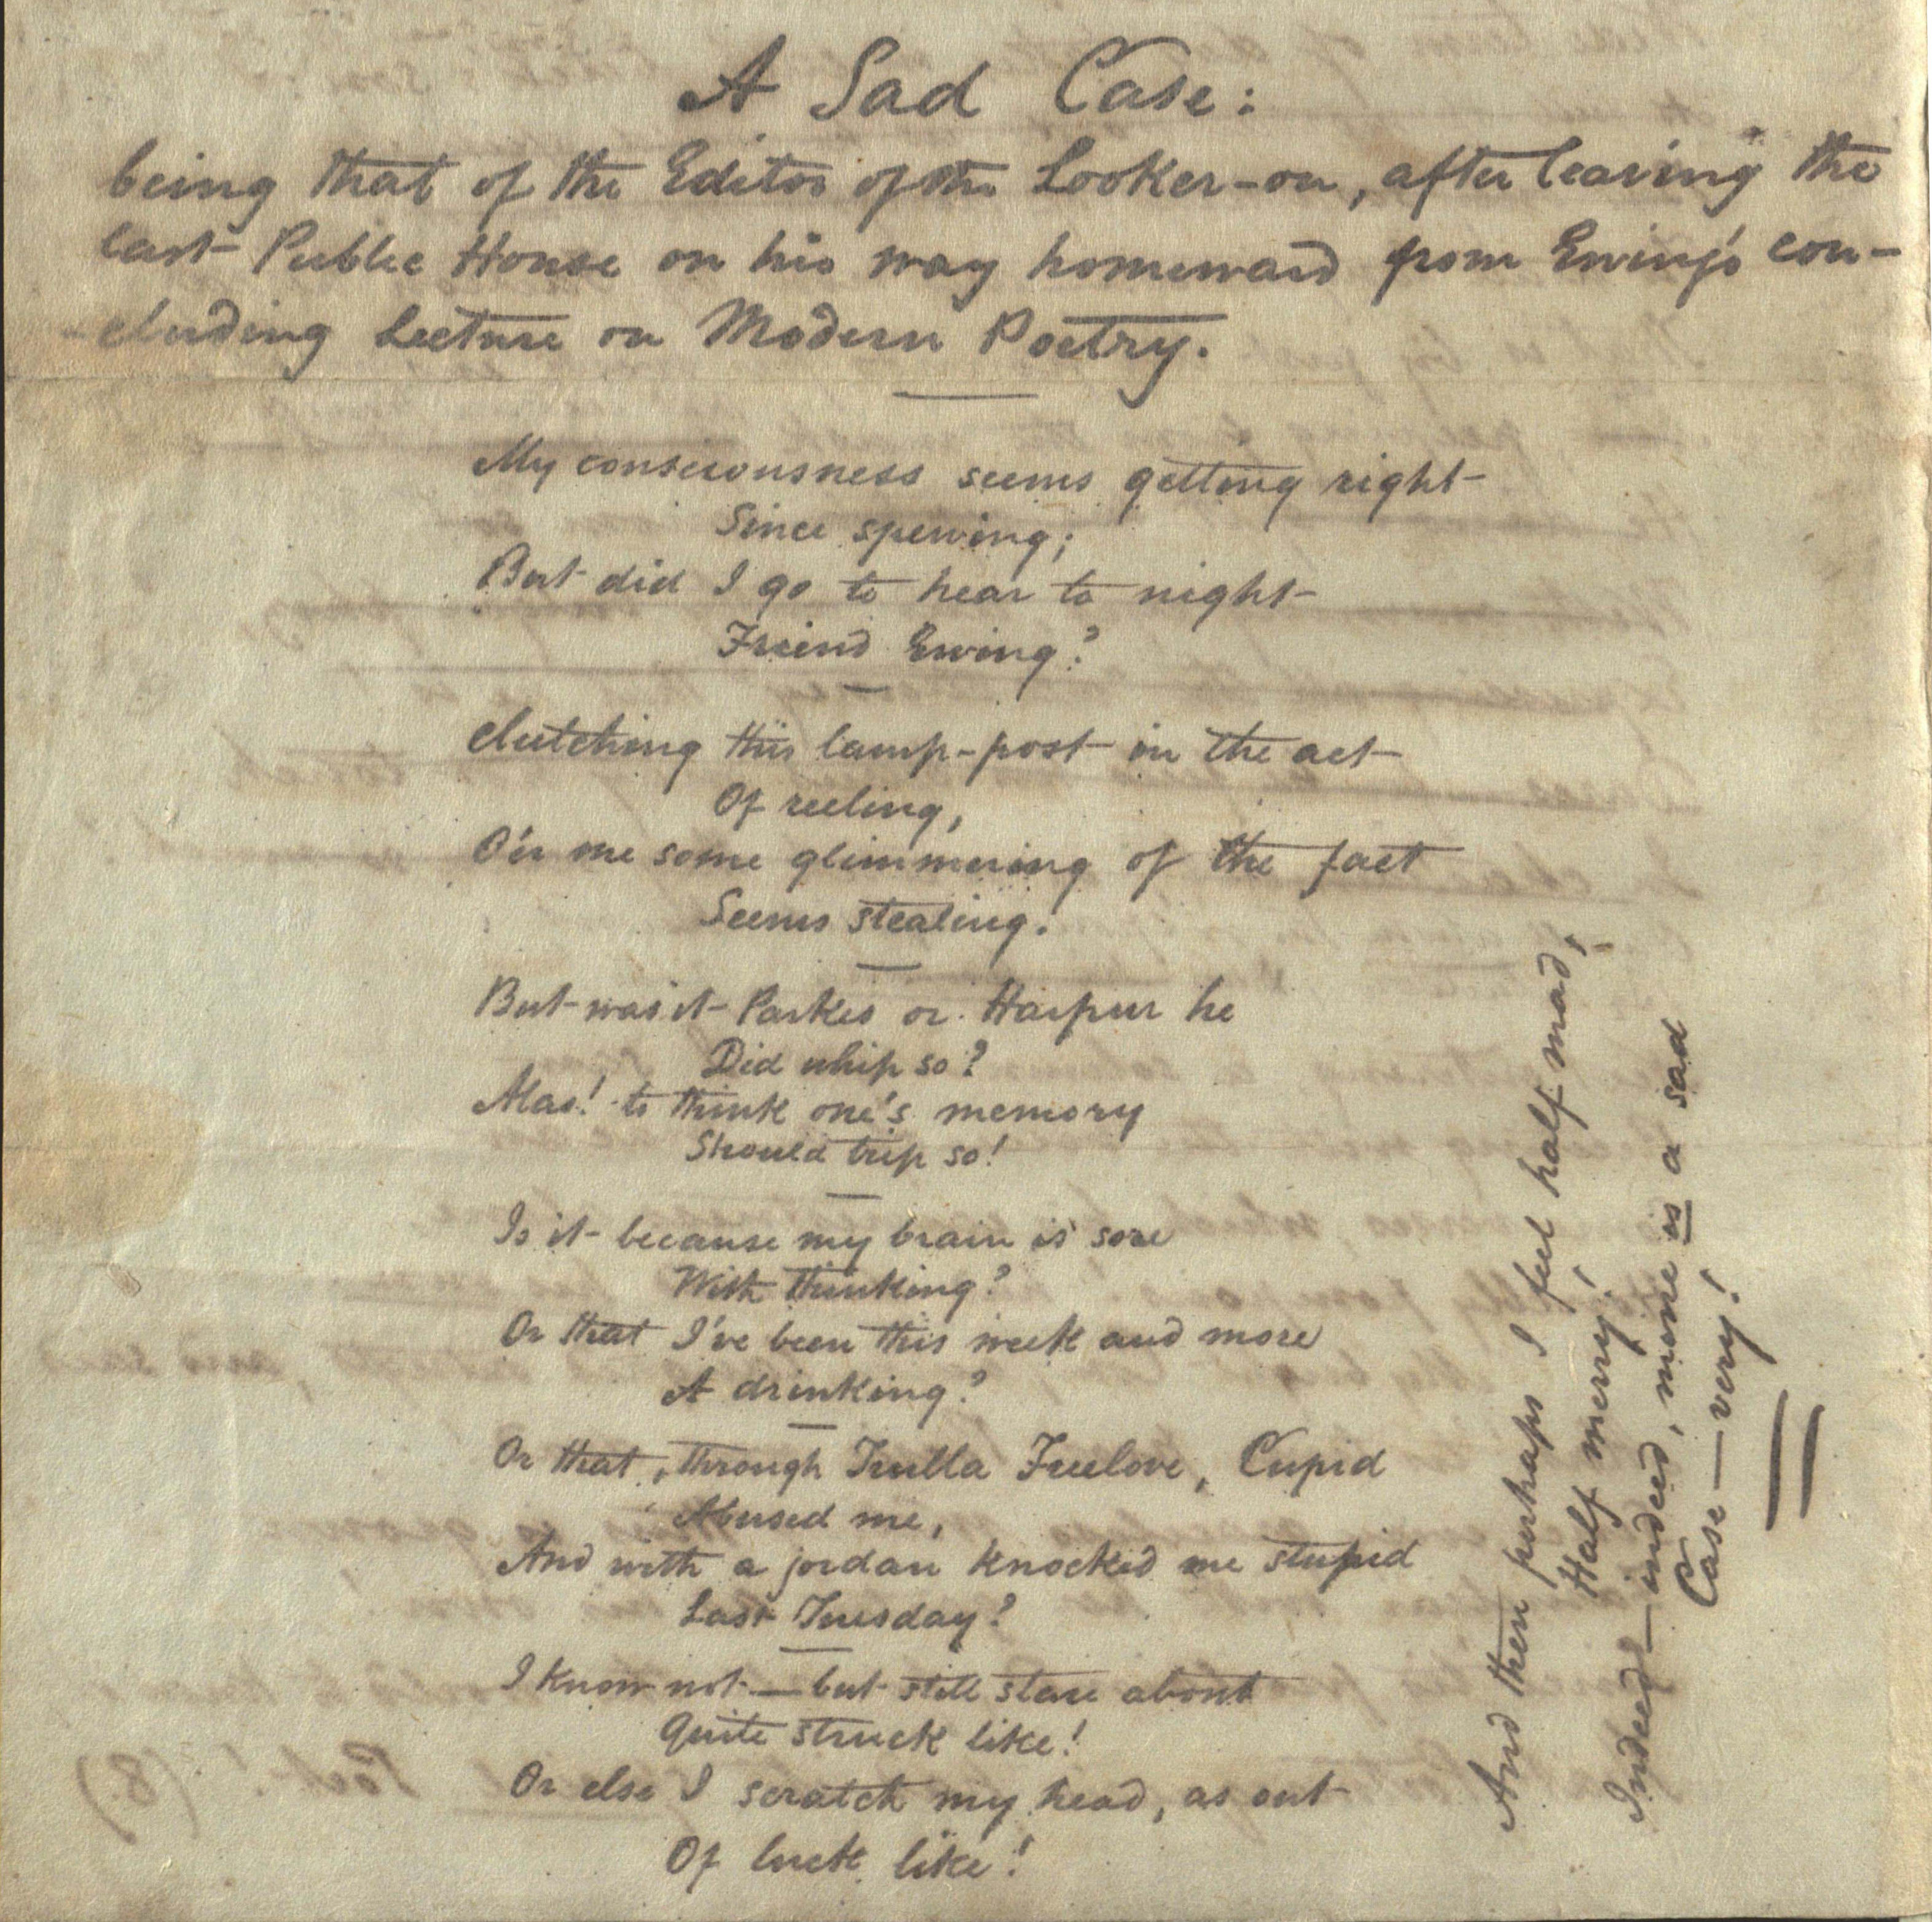 A Sad Case:
being that of the Editor of the Looker-on, after leaving the
last Public House on his way homeward from Ewing's con-
-cluding Lecture on Modern Poetry.
My consciousness seems getting right
Since spewing;
But did I go to hear to night
Friend Ewing?
Clutching this lamp-post in the act
Of reeling,
O'er me some glimmering of the fact
Seems stealing.
But was it Parkes or Harpur he
Did whip so?
Alas! to think one's memory
Should trip so!
Is it because my brain is sore
With thinking?
Or that I've been this week and more
A drinking?
Or that, through Trulla Freelove, Cupid
Abused me,
And with a jordan knocked me stupid
Last Tuesday?
I know not — but still stare about
Quite struck like!
Or else I scratch my head, as out
Of luck like!
And then perhaps I feel half mad,
Half merry!
Indeed — indeed, mine is a sad
Case — very!